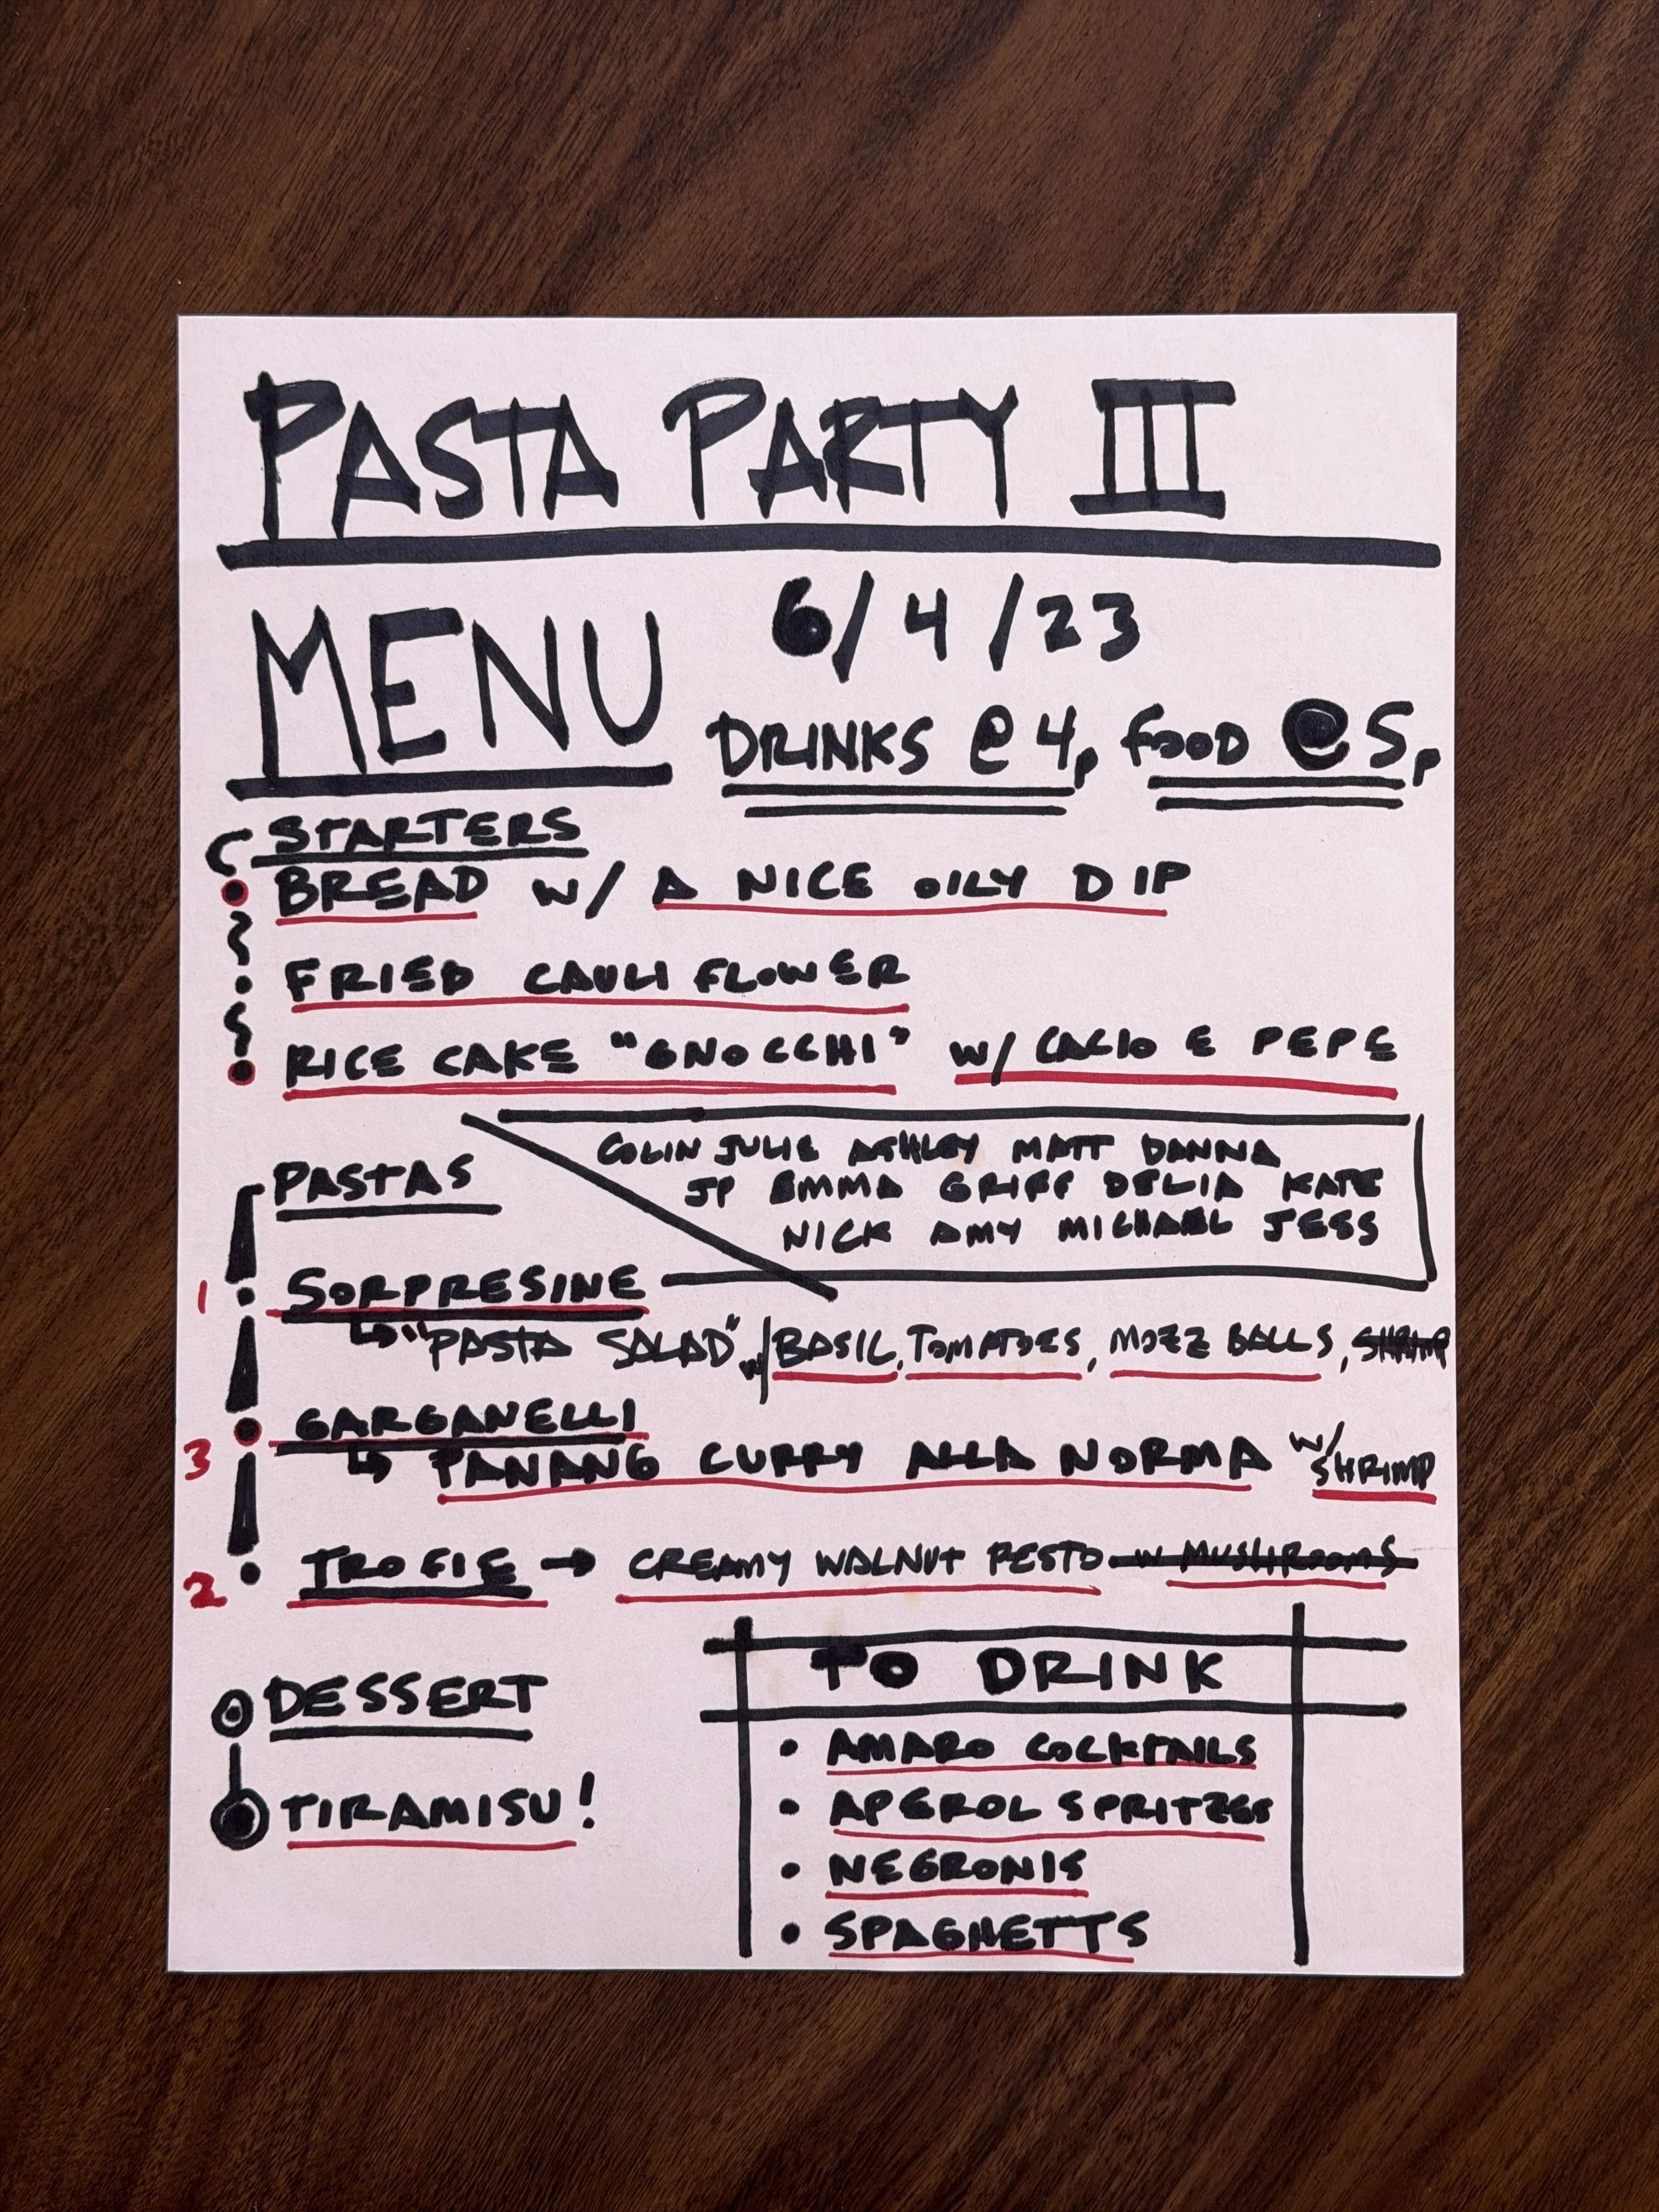 PASTA PARTY III
MENU
6/4/23
DRINKS @ 4p FOOD @ 5p
STARTERS
BREAD w/ A NICE OILY DIP
FRIED CAULIFLOWER
RICE CAKE "GNOCCHI" w/ CACIO E PEPE
COLIN JULIE ASHLEY MATT DANNA
JP EMMA GRIFF DELIA KATE
NICK AMY MICHAEL JESS
PASTAS
1 SORPRESINE
"PASTA SALAD" w/ BASIL, TOMATOES, MOZZ BALLS, SHRIMP
3 GARGANELLI
PANANG CURRY ALLA NORMA w/ SHRIMP
2 TROFIE → CREAMY WALNUT PESTO w MUSHROOMS
DESSERT
TIRAMISU!
TO DRINK
• AMARO COCKTAILS
• APEROL SPRITZES
• NEGRONIS
• SPAGHETTS